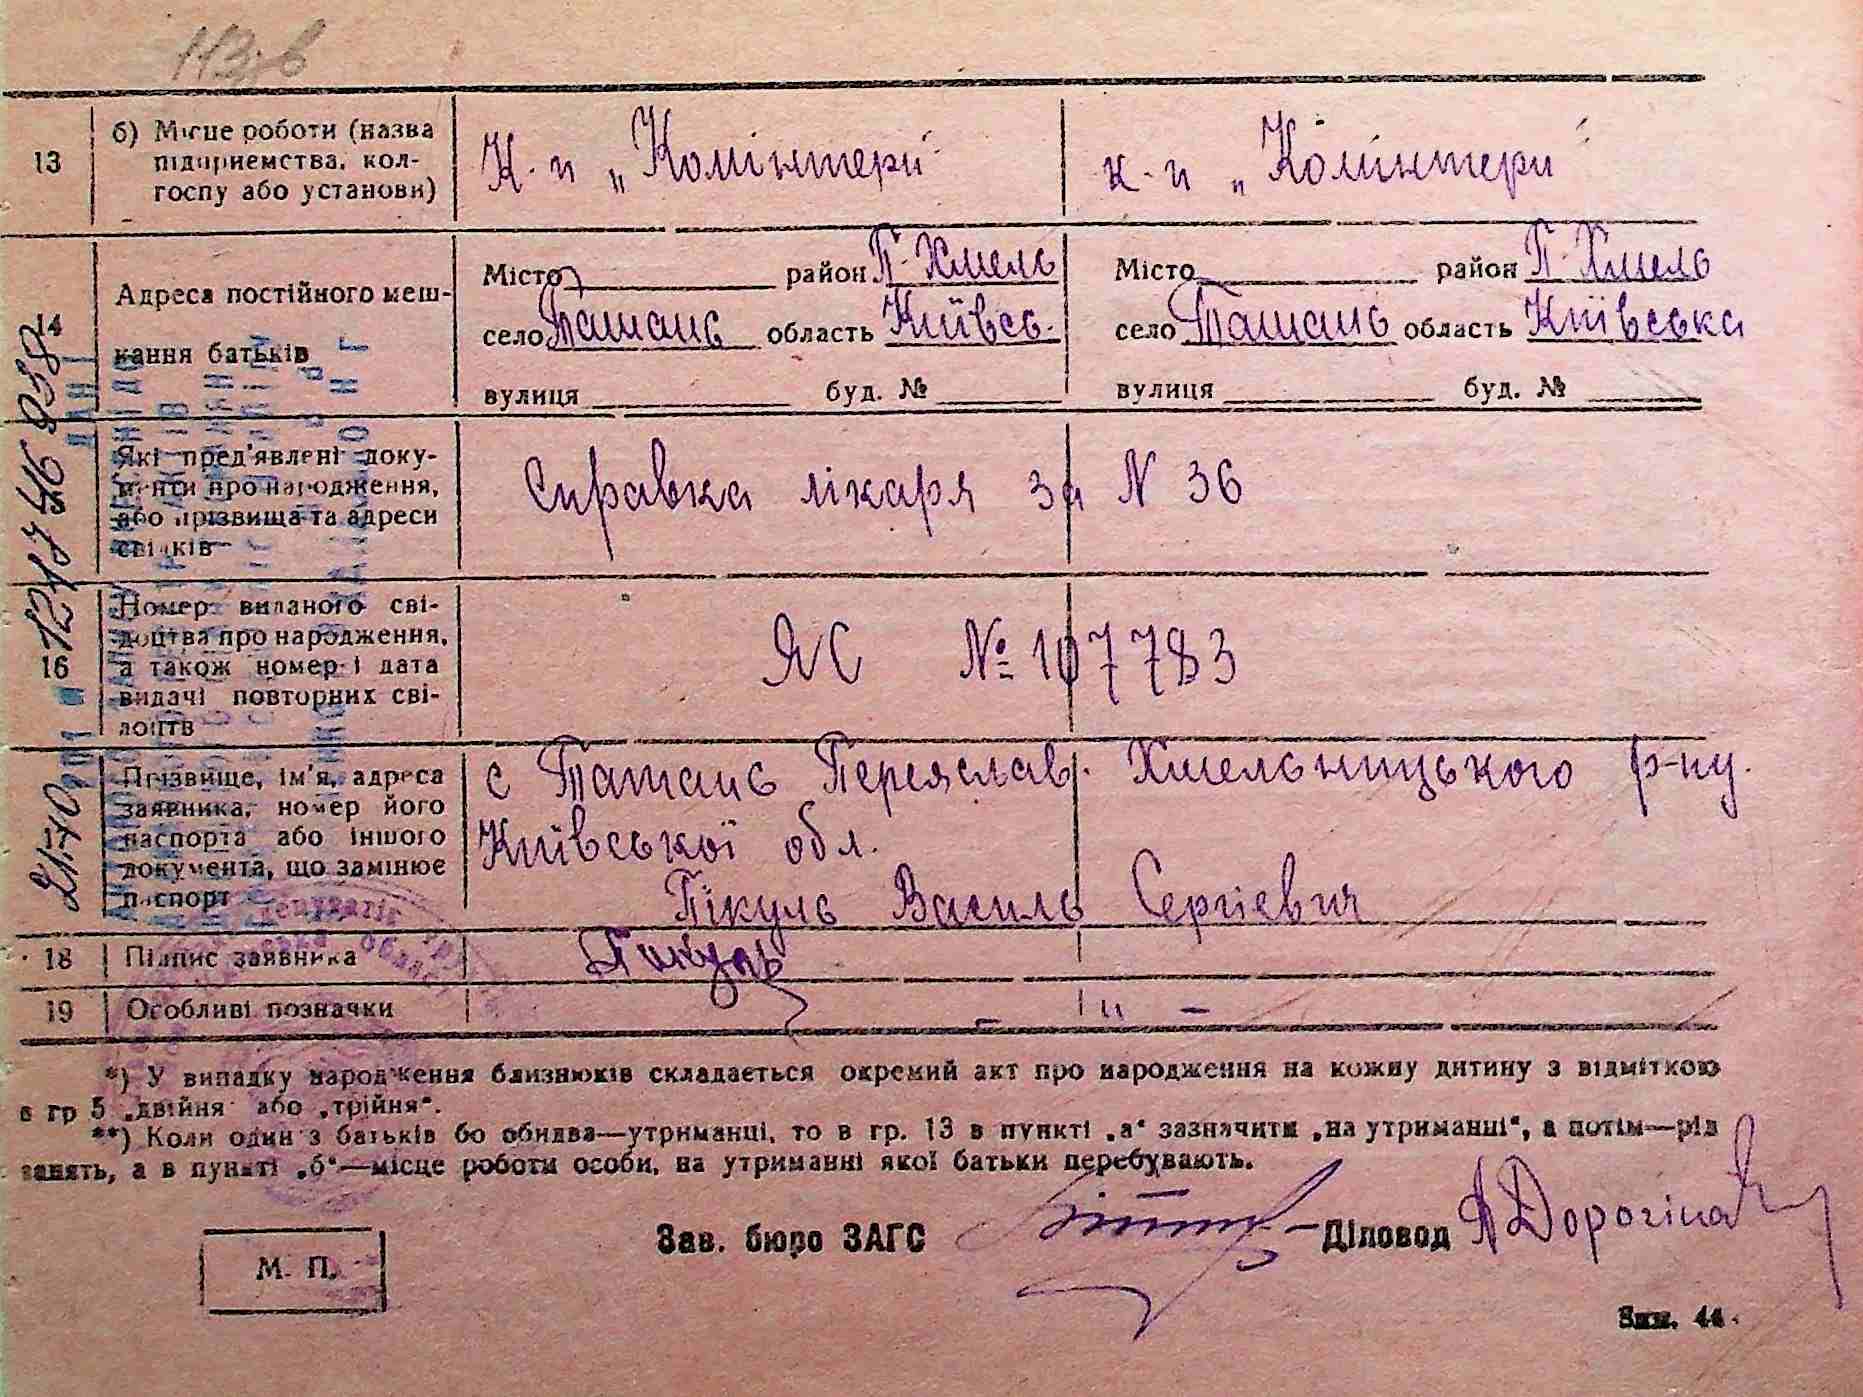 13
б) Місце роботи (назва
підприємства, кол-
госпу або установи)
К-п „Комінтерн"
к-п „Комінтерн"
14
Адреса постійного меш-
кання батьків
Місто район П-Хмель
село Ташань область Київсь.
вулиця буд. №
Місто район П-Хмель
село Ташань область Київська
вулиця буд. №
Які пред'явлені доку-
менти про народження,
або прізвища та адреси
свідків
Справка лікаря за N 36
16
Номер виданого сві-
доцтва про народження,
а також номер і дата
видачі повторних сві-
доцтв
ЯС № 107783
Прізвище, ім'я, адреса
заявника, номер його
паспорта або іншого
документа, що замінює
паспорт
с Ташань Переяслав. Хмельницького р-ну.
Київської обл.
Пікуль Василь Сергієвич
18
Підпис заявника
Пікуль
19
Особливі позначки
– „ –
*) У випадку народження близнюків складається окремий акт про народження на кожну дитину з відміткою
в гр 5 „двійня" або „трійня".
**) Коли один з батьків бо обидва—утриманці, то в гр. 13 в пункті „а" зазначити „на утриманні", а потім—рід
занять, а в пункті „б"—місце роботи особи, на утриманні якої батьки перебувають.
Зав. бюро ЗАГС
Діловод
М. П.
Зам. 44